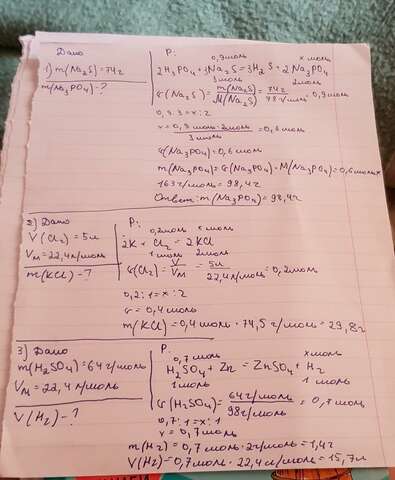 Дано
1) m(Na₂S)=74г
m(Na₃PO₄)-?
Р:
0,9моль x моль
2H₃PO₄+3Na₂S=3H₂S+2Na₃PO₄
3моль 2моль
m(Na₂S) 74г
M(Na₂S) = 0,9моль
0,9:3=x:2
x=0,9 моль·2моль
3моль =0,6моль
(Na₃PO₄)=0,6моль
m(Na₃PO₄)=(Na₃PO₄)·M(Na₃PO₄)=0,6моль×
164г/моль=98,4г
Ответ: m(Na₃PO₄)=98,4г
2) Дано
V(Cl₂)=5л
Vм=22,4л/моль
m(KCl)-?
Р:
0,2моль x моль
2K+Cl₂=2KCl
1моль 2моль
(Cl₂)=V/Vм=5л/22,4л/моль=0,2моль
0,2:1=x:2
=0,4моль
m(KCl)=0,4моль·74,5г/моль=29,8г
3) Дано
m(H₂SO₄)=64г/моль
Vм=22,4л/моль
V(H₂)-?
Р:
0,7моль xмоль
H₂SO₄+Zn=ZnSO₄+H₂
1моль 1моль
(H₂SO₄)=64г/моль/98г/моль=0,7моль
0,7:1=x:1
x=0,7моль
m(H₂)=0,7моль·2г/моль=1,4г
V(H₂)=0,7моль·22,4л/моль=15,7л